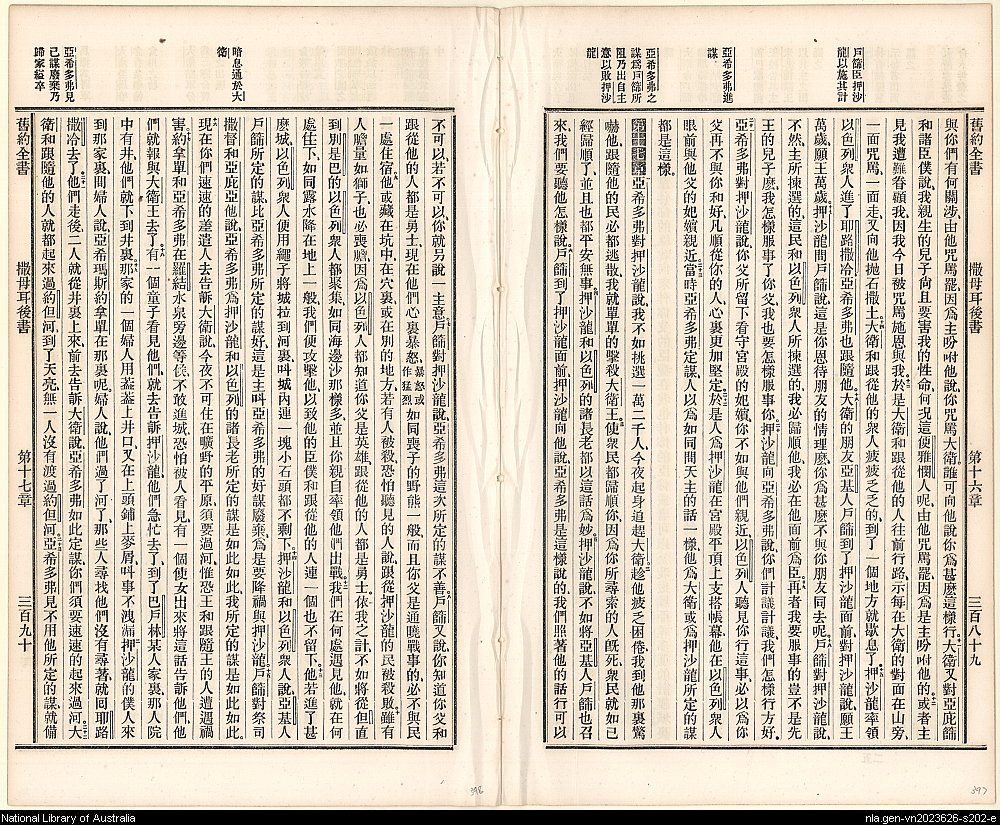 戶篩臣押沙
龍以施其計
亞希多弗進
謀
亞希多弗之
謀爲戶篩所
阻乃出自主
意以敗押沙
龍
舊約全書 撒母耳後書 第十六章 三百八十九
與你們有何關涉由他咒罵罷因爲主吩咐他說你咒罵大衛誰可向他說你爲甚麽這樣行大衛又對亞庇篩
和諸臣僕說我親生的兒子尚且要害我的性命何況這便雅憫人呢由他咒罵罷因爲是主吩咐他的或者主
見我遭難眷顧我因我今日被咒罵施恩與我於是大衛和跟從他的人往前行路示每在大衛的對面在山旁
一面走一面咒罵又向他拋石撒土大衛和跟從他的衆人疲疲乏乏的到了一個地方就歇息了押沙龍率領
以色列衆人進了耶路撒冷亞希多弗也跟隨他大衛的朋友亞基人戶篩到了押沙龍面前對押沙龍說願王
萬歲願王萬歲押沙龍問戶篩說這是你恩待朋友的情理麽你爲甚麽不與你朋友同去呢戶篩對押沙龍說
不然主所揀選的這民和以色列衆人所揀選的我必歸順他我必在他面前爲臣再者我要服事的豈不是先
王的兒子麽我怎樣服事了你父我也要怎樣服事你押沙龍向亞希多弗說你們計議計議我們怎樣行方好
亞希多弗對押沙龍說你父所留下看守宮殿的妃嬪你不如與他們親近以色列人聽見你行這事必以爲你
父再不與你和好凡順從你的人的心裏更加堅定於是人爲押沙龍在宮殿平頂上支搭帳幕他在以色列衆人
眼前與他父的妃嬪親近當時亞希多弗定謀人以爲如同問天主的話一樣他爲大衛或爲押沙龍所定的謀
都是這樣
第十七章亞希多弗對押沙龍說我不如挑選一萬二千人今夜起身追趕大衛趁他疲乏困倦我到他那裏驚
嚇他跟隨他的民必都逃散我就單單的擊殺大衛王使衆民都歸順你因爲你所尋索的人旣死衆民就如已
經歸順了並且也都平安無事押沙龍和以色列的諸長老都以這話爲妙押沙龍說不如將亞基人戶篩也召
來我們要聽他怎樣說戶篩到了押沙龍面前押沙龍向他說亞希多弗是這樣說的我們照著他的話行可以
397
暗息通於大
衛
亞希多弗見
已謀廢棄乃
歸家縊卒
不可以若不可以你就另說一主意戶篩對押沙龍說亞希多弗這次所定的謀不善戶篩又說你知道你父和
跟從他的人都是勇士現在他們心裏暴怒暴怒或作猛烈如同喪子的野熊一般而且你父是通曉戰事的必不與民
一處住宿他或藏在坑中在穴裏或在別的地方若有人被殺恐怕聽見的人說跟從押沙龍的民被殺敗雖有
人膽量如獅子也必喪膽因爲以色列人都知道你父是英雄跟從他的人都是勇士依我之計不如將從但直
到別是巴的以色列衆人都聚集如同海邊沙那樣多並且你親自率領他們出戰我們在何處遇見他就在何
處住下如同露水降在地上一般我們便攻擊他以致他的臣僕和跟從他的人連一個也不留下他若進了甚
麽城以色列衆人便用繩子將城拉到河裏叫城內連一塊小石頭都不剩下押沙龍和以色列衆人說亞基人
戶篩所定的謀比亞希多弗所定的謀好這是主叫亞希多弗的好謀廢棄爲是要降禍與押沙龍戶篩對祭司
撒督和亞庇亞他說亞希多弗爲押沙龍和以色列的諸長老所定的謀是如此如此我所定的謀是如此如此
現在你們速速的差遣人去告訴大衛說今夜不可住在曠野的平原須要過河惟恐王和跟隨王的人遭遇禍
害約拿單和亞希瑪斯在羅結水泉旁邊等候不敢進城恐怕被人看見有一個使女出來將這話告訴他們他
們就報與大衛王去了有一個童子看見他們就去告訴押沙龍他們急忙去了到了巴戶林某人家裏那人院
中有井他們就下到井裏那家的一個婦人用蓋蓋上井口又在上頭鋪上麥屑叫事不洩漏押沙龍的僕人來
到那家裏問婦人說亞希瑪斯約拿單在那裏呢婦人說他們過了河了那些人尋找他們沒有尋著就回耶路
撒冷去了他們走後二人就從井裏上來前去告訴大衛說亞希多弗如此定謀你們須要速速的起來過河大
衛和跟隨他的人就都起來過約但河到了天亮無一人沒有渡過約但河亞希多弗見不用他所定的謀就備
舊約全書 撒母耳後書 第十七章 三百九十
398
National Library of Australia
nla.gen-vn2023626-s202-e